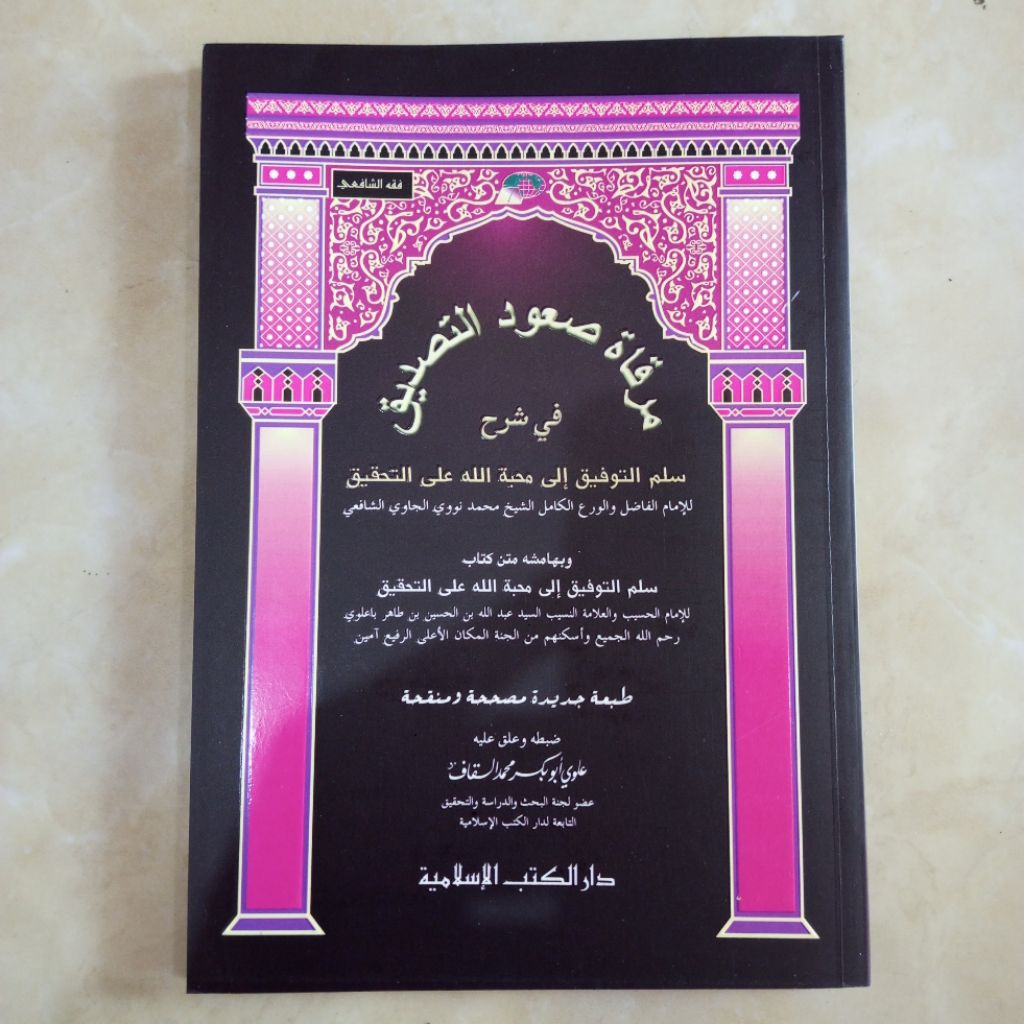 فقه الشافعي
مرقاة صعود التصديق
في شرح
سلم التوفيق إلى محبة الله على التحقيق
للإمام الفاضل والورع الكامل الشيخ محمد نووي الجاوي الشافعي
وبهامشه متن كتاب
سلم التوفيق إلى محبة الله على التحقيق
للإمام الحسيب والعلامة النسيب السيد عبد الله بن الحسين بن طاهر باعلوي
رحم الله الجميع وأسكنهم من الجنة المكان الأعلى الرفيع آمين
طبعة جديدة مصححة ومنقحة
ضبطه وعلق عليه
علوي أبو بكر محمد السقاف
عضو لجنة البحث والدراسة والتحقيق
التابعة لدار الكتب الإسلامية
دار الكتب الإسلامية